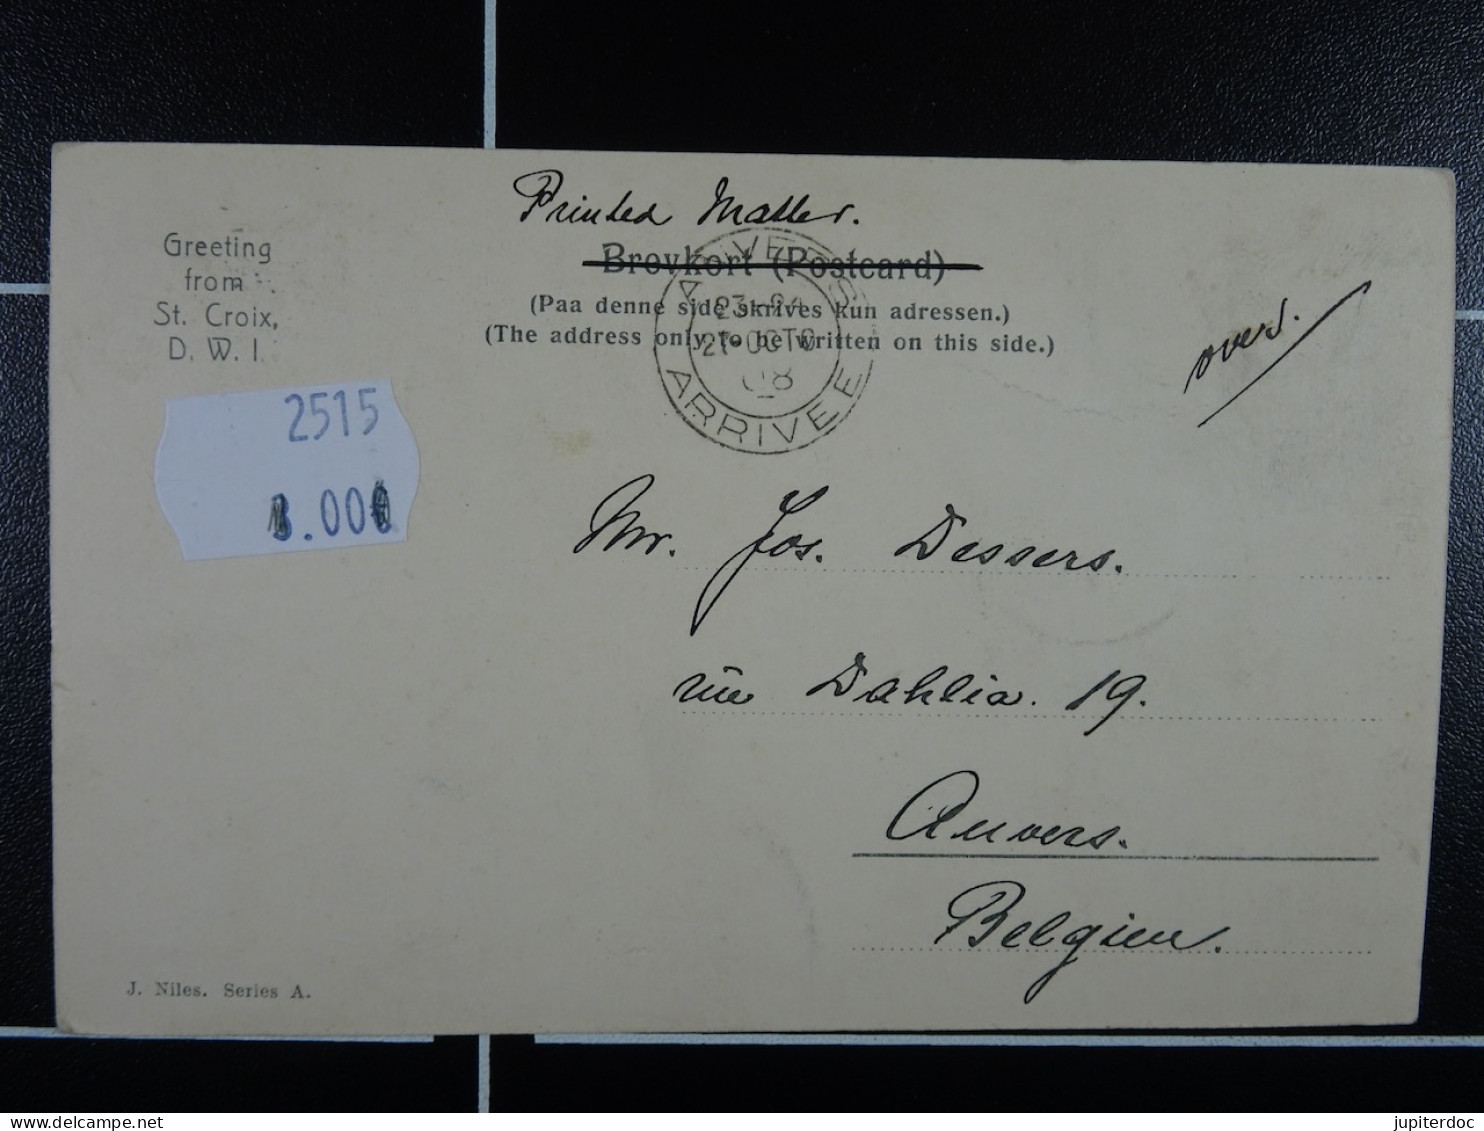 Printed Matter.
Greeting
from
St. Croix,
D. W. I.
Brevkort (Postcard)
(Paa denne side skrives kun adressen.)
(The address only to be written on this side.)
ANVERS
23-24
27 OCTO
08
ARRIVEE
overs.
2515
.00
Mr. Jos. Dessers.
rue Dahlia. 19.
Anvers.
Belgien.
J. Niles. Series A.
jupiterdoc